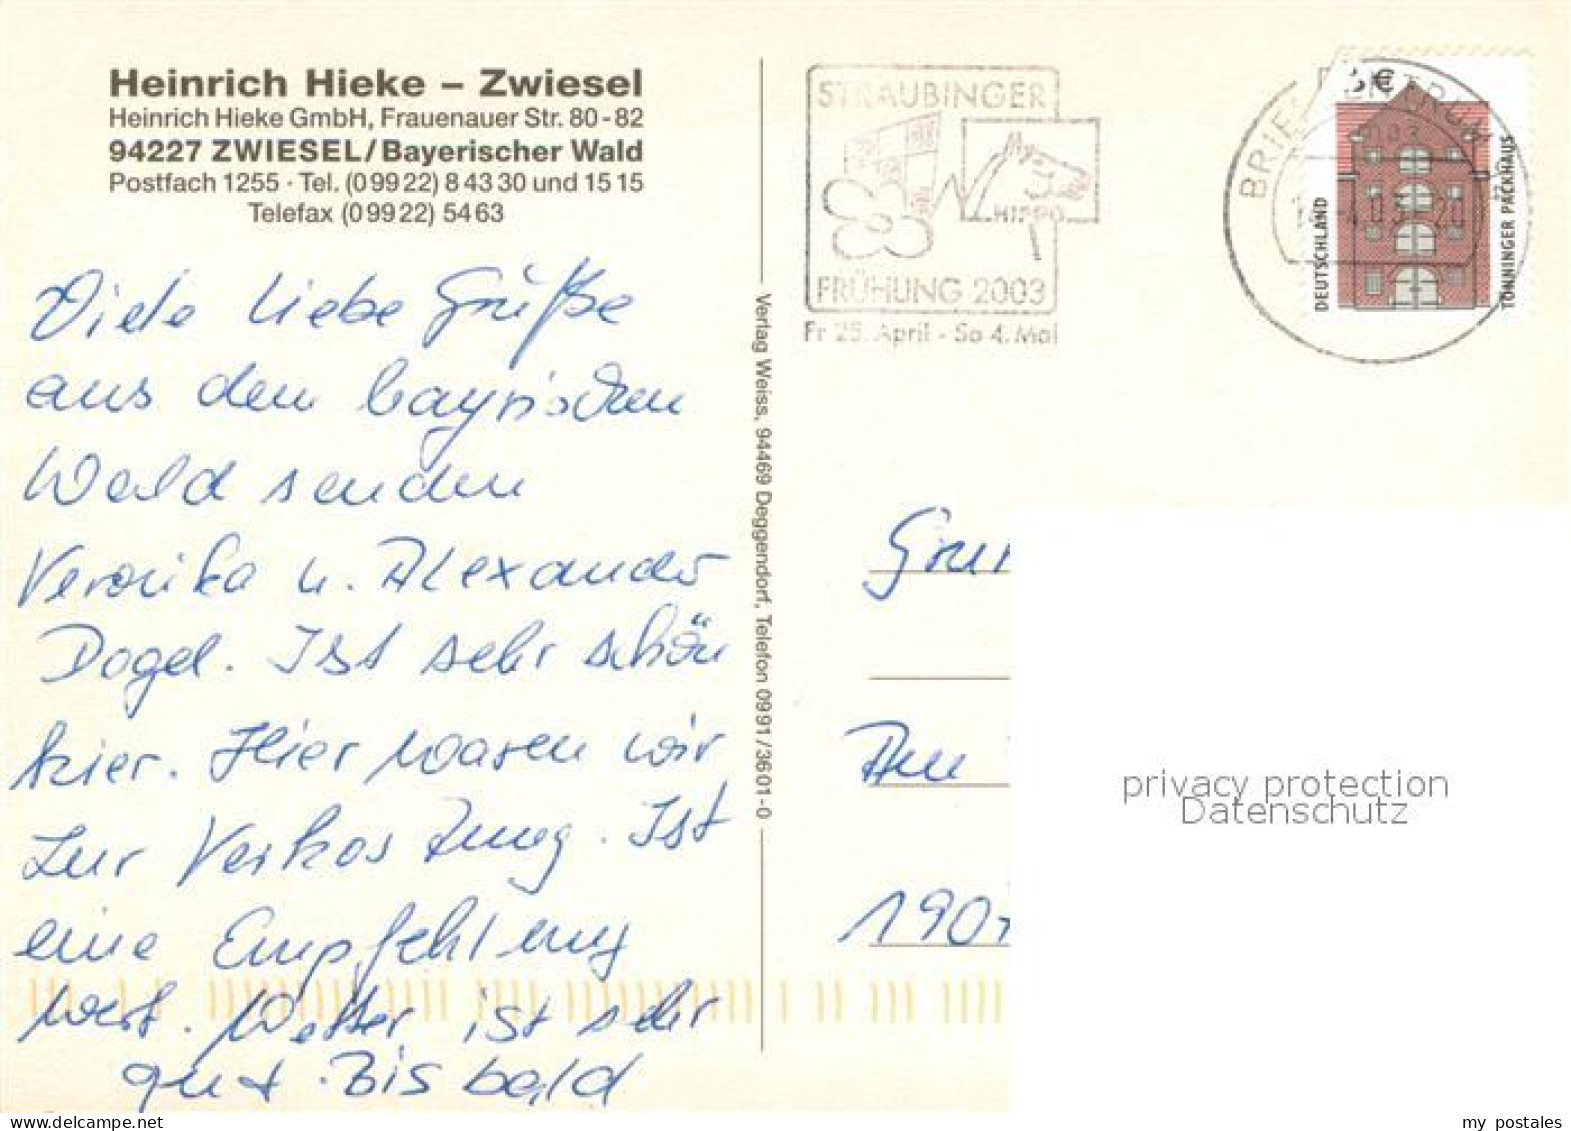 Heinrich Hieke – Zwiesel
Heinrich Hieke GmbH, Frauenauer Str. 80-82
94227 ZWIESEL/Bayerischer Wald
Postfach 1255 · Tel. (0 99 22) 8 43 30 und 15 15
Telefax (0 99 22) 54 63
Viele liebe Grüße
aus dem bayrischen
Wald senden
Veronika u. Alexander
Dogel. Ist sehr schön
hier. Hier waren wir
zur Verkostung. Ist
eine Empfehlung
wert. Wetter ist sehr
gut. Bis bald
Verlag Weiss, 94469 Deggendorf, Telefon 09 91 / 36 01 - 0
STRAUBINGER
HIPPO
FRÜHUNG 2003
Fr 25. April - So 4. Mai
BRIEFZENTRUM
€
DEUTSCHLAND
TÖNNINGER PACKHAUS
Am
190
privacy protection
Datenschutz
my postales